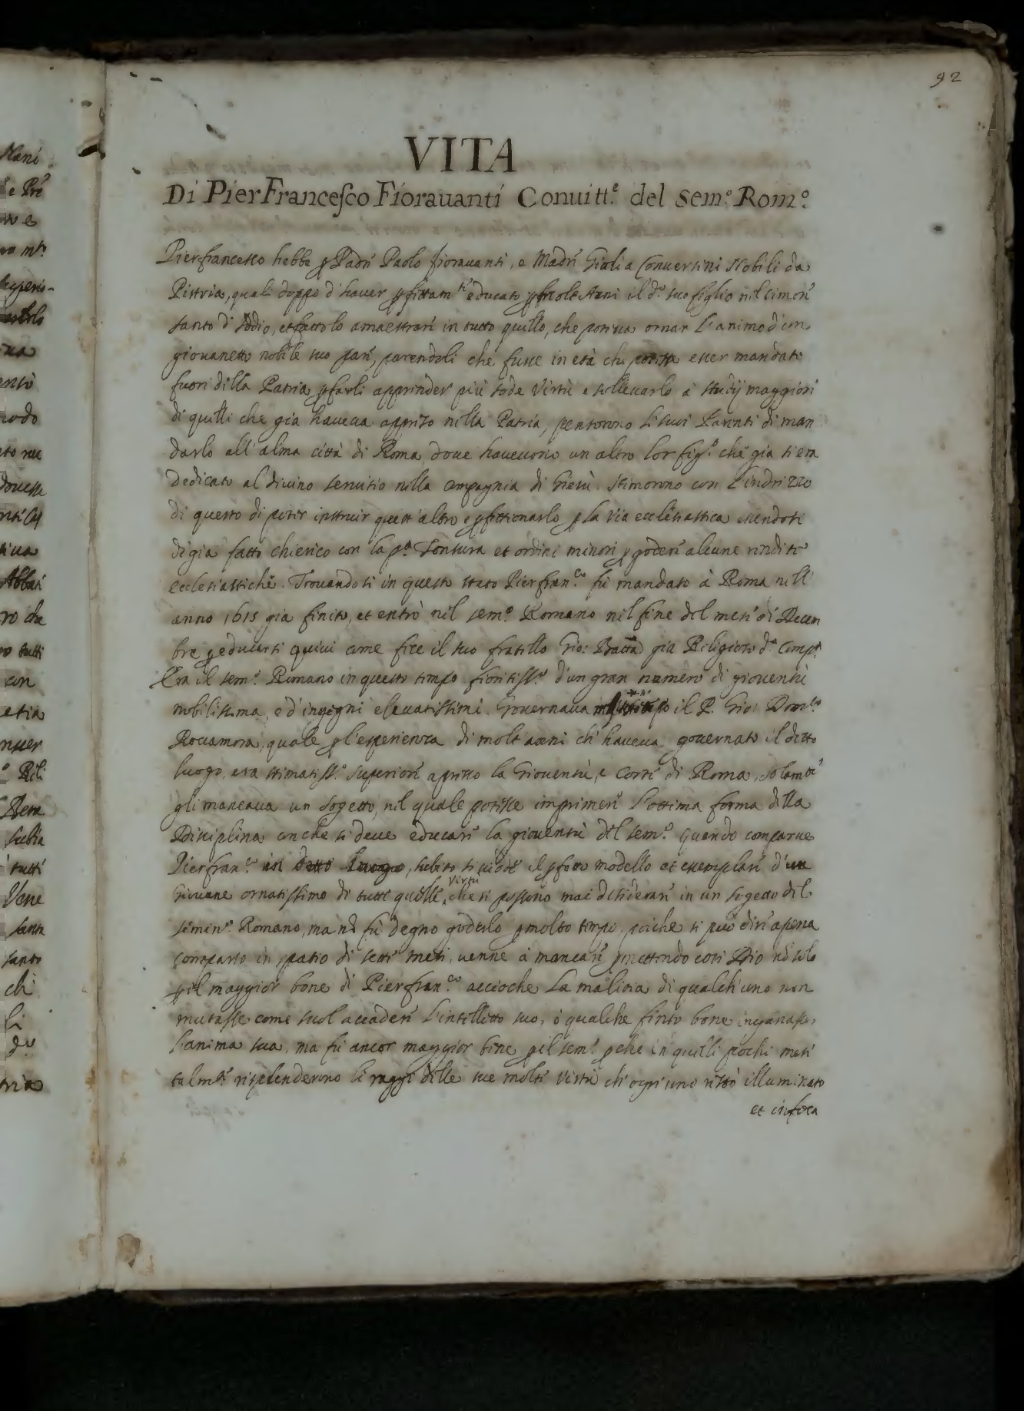 92
VITA
Di PierFrancesco Fiorauanti Conuitt.e del Sem.o Rom.o
Pierfrancesco hebbe p Padre Paolo fiorauanti, e Madre Giulia Conuersini Nobili da
Pistoia, quali doppo d'hauer pfettam.te educato p molti Anni il d.o suo figlio nel timore
santo di Iddio, et fattolo amaestrare in tutto quello, che poteua ornar l'animo d'un
giouanetto nobile suo pari, parendoli che fusse in età che potessa esser mandato
fuori della Patria p farli apprender più sode Virtù e solleuarlo a studij maggiori
di quelli che gia haueua appreso nella Patria, pensorono li suoi Parenti di man
darlo all'alma città di Roma, doue haueuono un altro lor fig.o che già s'era
dedicato al diuino seruitio nella Compagnia di Giesù. Stimorono con l'indrizzo
di questo di poter instruir quest'altro e pfettionarlo p la via ecclesiastica essendosi
digia fatto chierico con la p.a Tonsura et ordini minori p godere alcune rendite
ecclesiastiche. Trouandosi in questo stato Pierfran.co fù mandato à Roma nell'
anno 1615 gia finito, et entrò nel sem.o Romano nel fine del mese di Decem
bre p educarsi quiui come fece il suo fratello Gio: Batta già Religioso d.a Comp.a
Era il sem.o Romano in questo tempo fioritiss.o d'un gran numero di giouentù
nobilissima, e d'ingegni eleuatissimi. Gouernaua il P. Gio: Dom.co
Roccamora, quale p l'esperienza di molt'anni ch'haueua gouernato il detto
luogo, era stimatiss.o superiore apresso la Giouentù, e Corte di Roma, solam.te
gli mancaua un sogetto, nel quale potesse imprimere l'ottima forma della
Disciplina con che si deue educare la giouentù del sem.o quando comparue
Pierfran.co in detto luogo, subito si uidde il pfetto modello et esemplare d'un
Giouane ornatissimo di tutte quelle Virtù che si possono mai desiderare in un sogetto del
semin.o Romano, ma nõ fù degno goderlo p molto tempo, poiche si può dire apena
comparso in spatio di sette mesi, uenne à mancare pmettendo così Dio nõ solo
p il maggior bene di Pierfran.co accioche la malitia di qualch'uno non
mutasse come suol accadere l'intelletto suo, ò qualche finto bene ingannasse
l'anima sua, ma fù ancor maggior bene p il sem.o pche in quelli pochi mesi
talm.te risplenderono li raggi delle sue molte virtù ch'ogni uno restò illuminato
et infoca